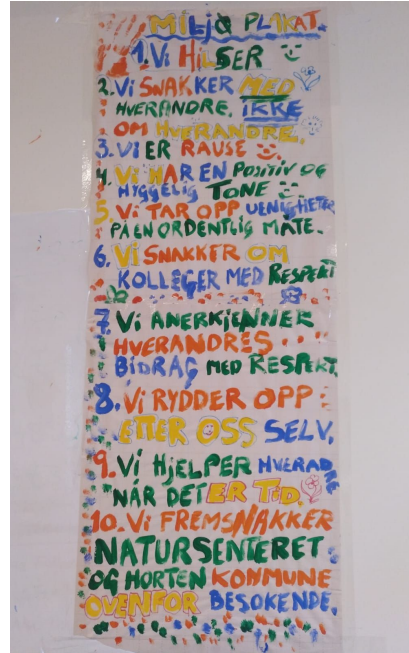 MILJØ PLAKAT.
1. Vi HILSER
2. Vi SNAKKER MED
HVERANDRE. IKKE
OM HVERANDRE.
3. Vi ER RAUSE
4. Vi HAR EN POSITIV OG
HYGGELIG TONE
5. Vi TAR OPP UENIGHETER
PÅ EN ORDENTLIG MÅTE.
6. Vi SNAKKER OM
KOLLEGER MED RESPEKT
7. Vi ANERKJENNER
HVERANDRES
BIDRAG MED RESPEKT.
8. Vi RYDDER OPP
ETTER OSS SELV.
9. Vi HJELPER HVERADRE
NÅR DET ER TID.
10. Vi FREMSNAKKER
NATURSENTERET
OG HORTEN KOMMUNE
OVENFOR BESØKENDE.